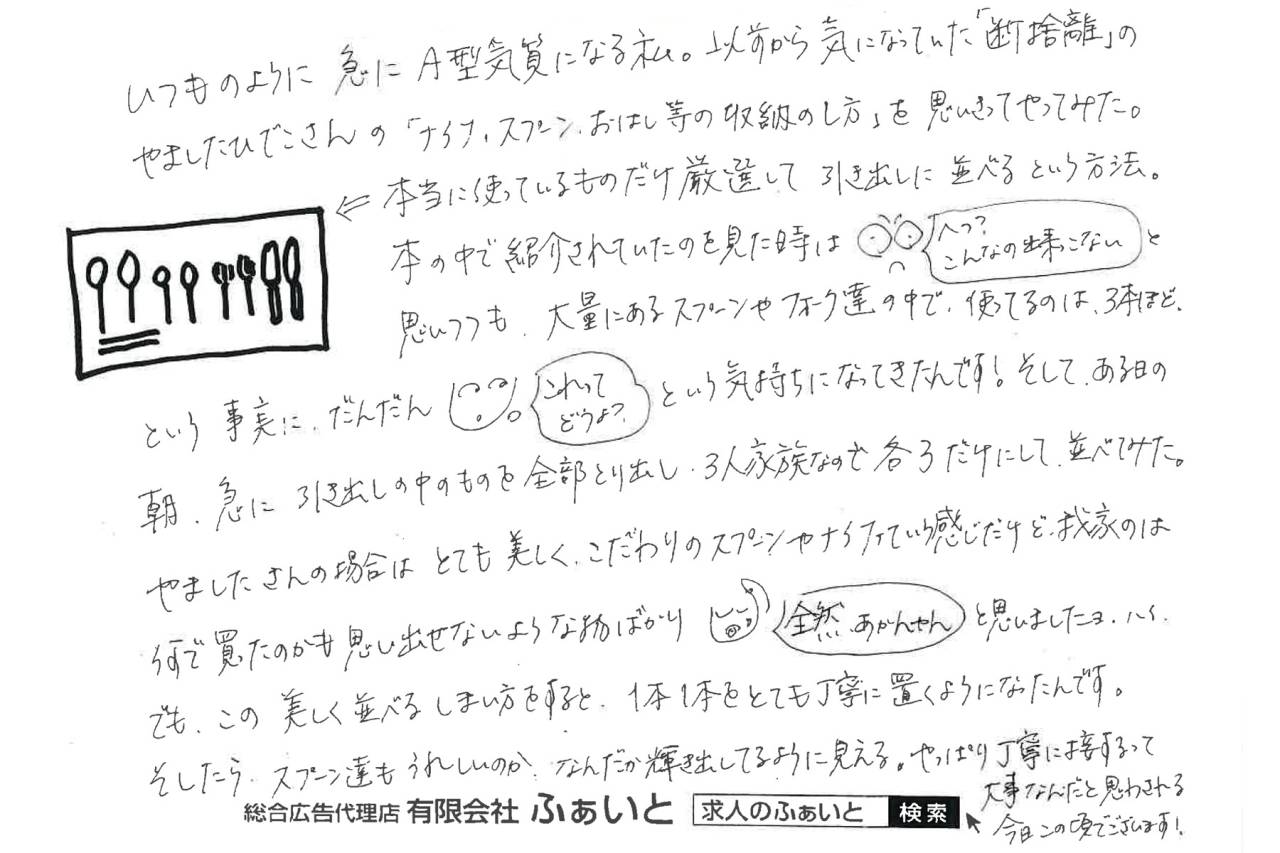 いつものように 急に A型気質になる私。以前から気になっていた「断捨離」の
やましたひでこさんの「ナイフ、スプーン、おはし等の収納のし方」を思いきってやってみた。
⇐ 本当に使っているものだけ厳選して 引き出しに 並べる という方法。
本の中で紹介されていたのを見た時は へっ? こんなの出来っこない と
思いつつも、大量にあるスプーンやフォーク達の中で、使ってるのは、3本ほど、
という事実に、だんだん これって どうよ? という気持ちになってきたんです!そして、ある日の
朝、急に 引き出しの中のものを全部とり出し、3人家族なので各3だけにして、並べてみた。
やましたさんの場合は とても美しく、こだわりのスプーンやナイフっていう感じだけど、我家のは
何で買たのかも思い出せないような物ばかり 全然 あかんやん と思いましたョ、ハイ、
でも、この 美しく並べる しまい方をすると、1本1本をとても丁寧に置くようになったんです。
そしたら、スプーン達もうれしいのか、なんだか輝き出してるように見える。やっぱり丁寧に接するって
大事なんだと思わされる
今日この頃でございます!
総合広告代理店 有限会社 ふぁいと 求人のふぁいと 検索